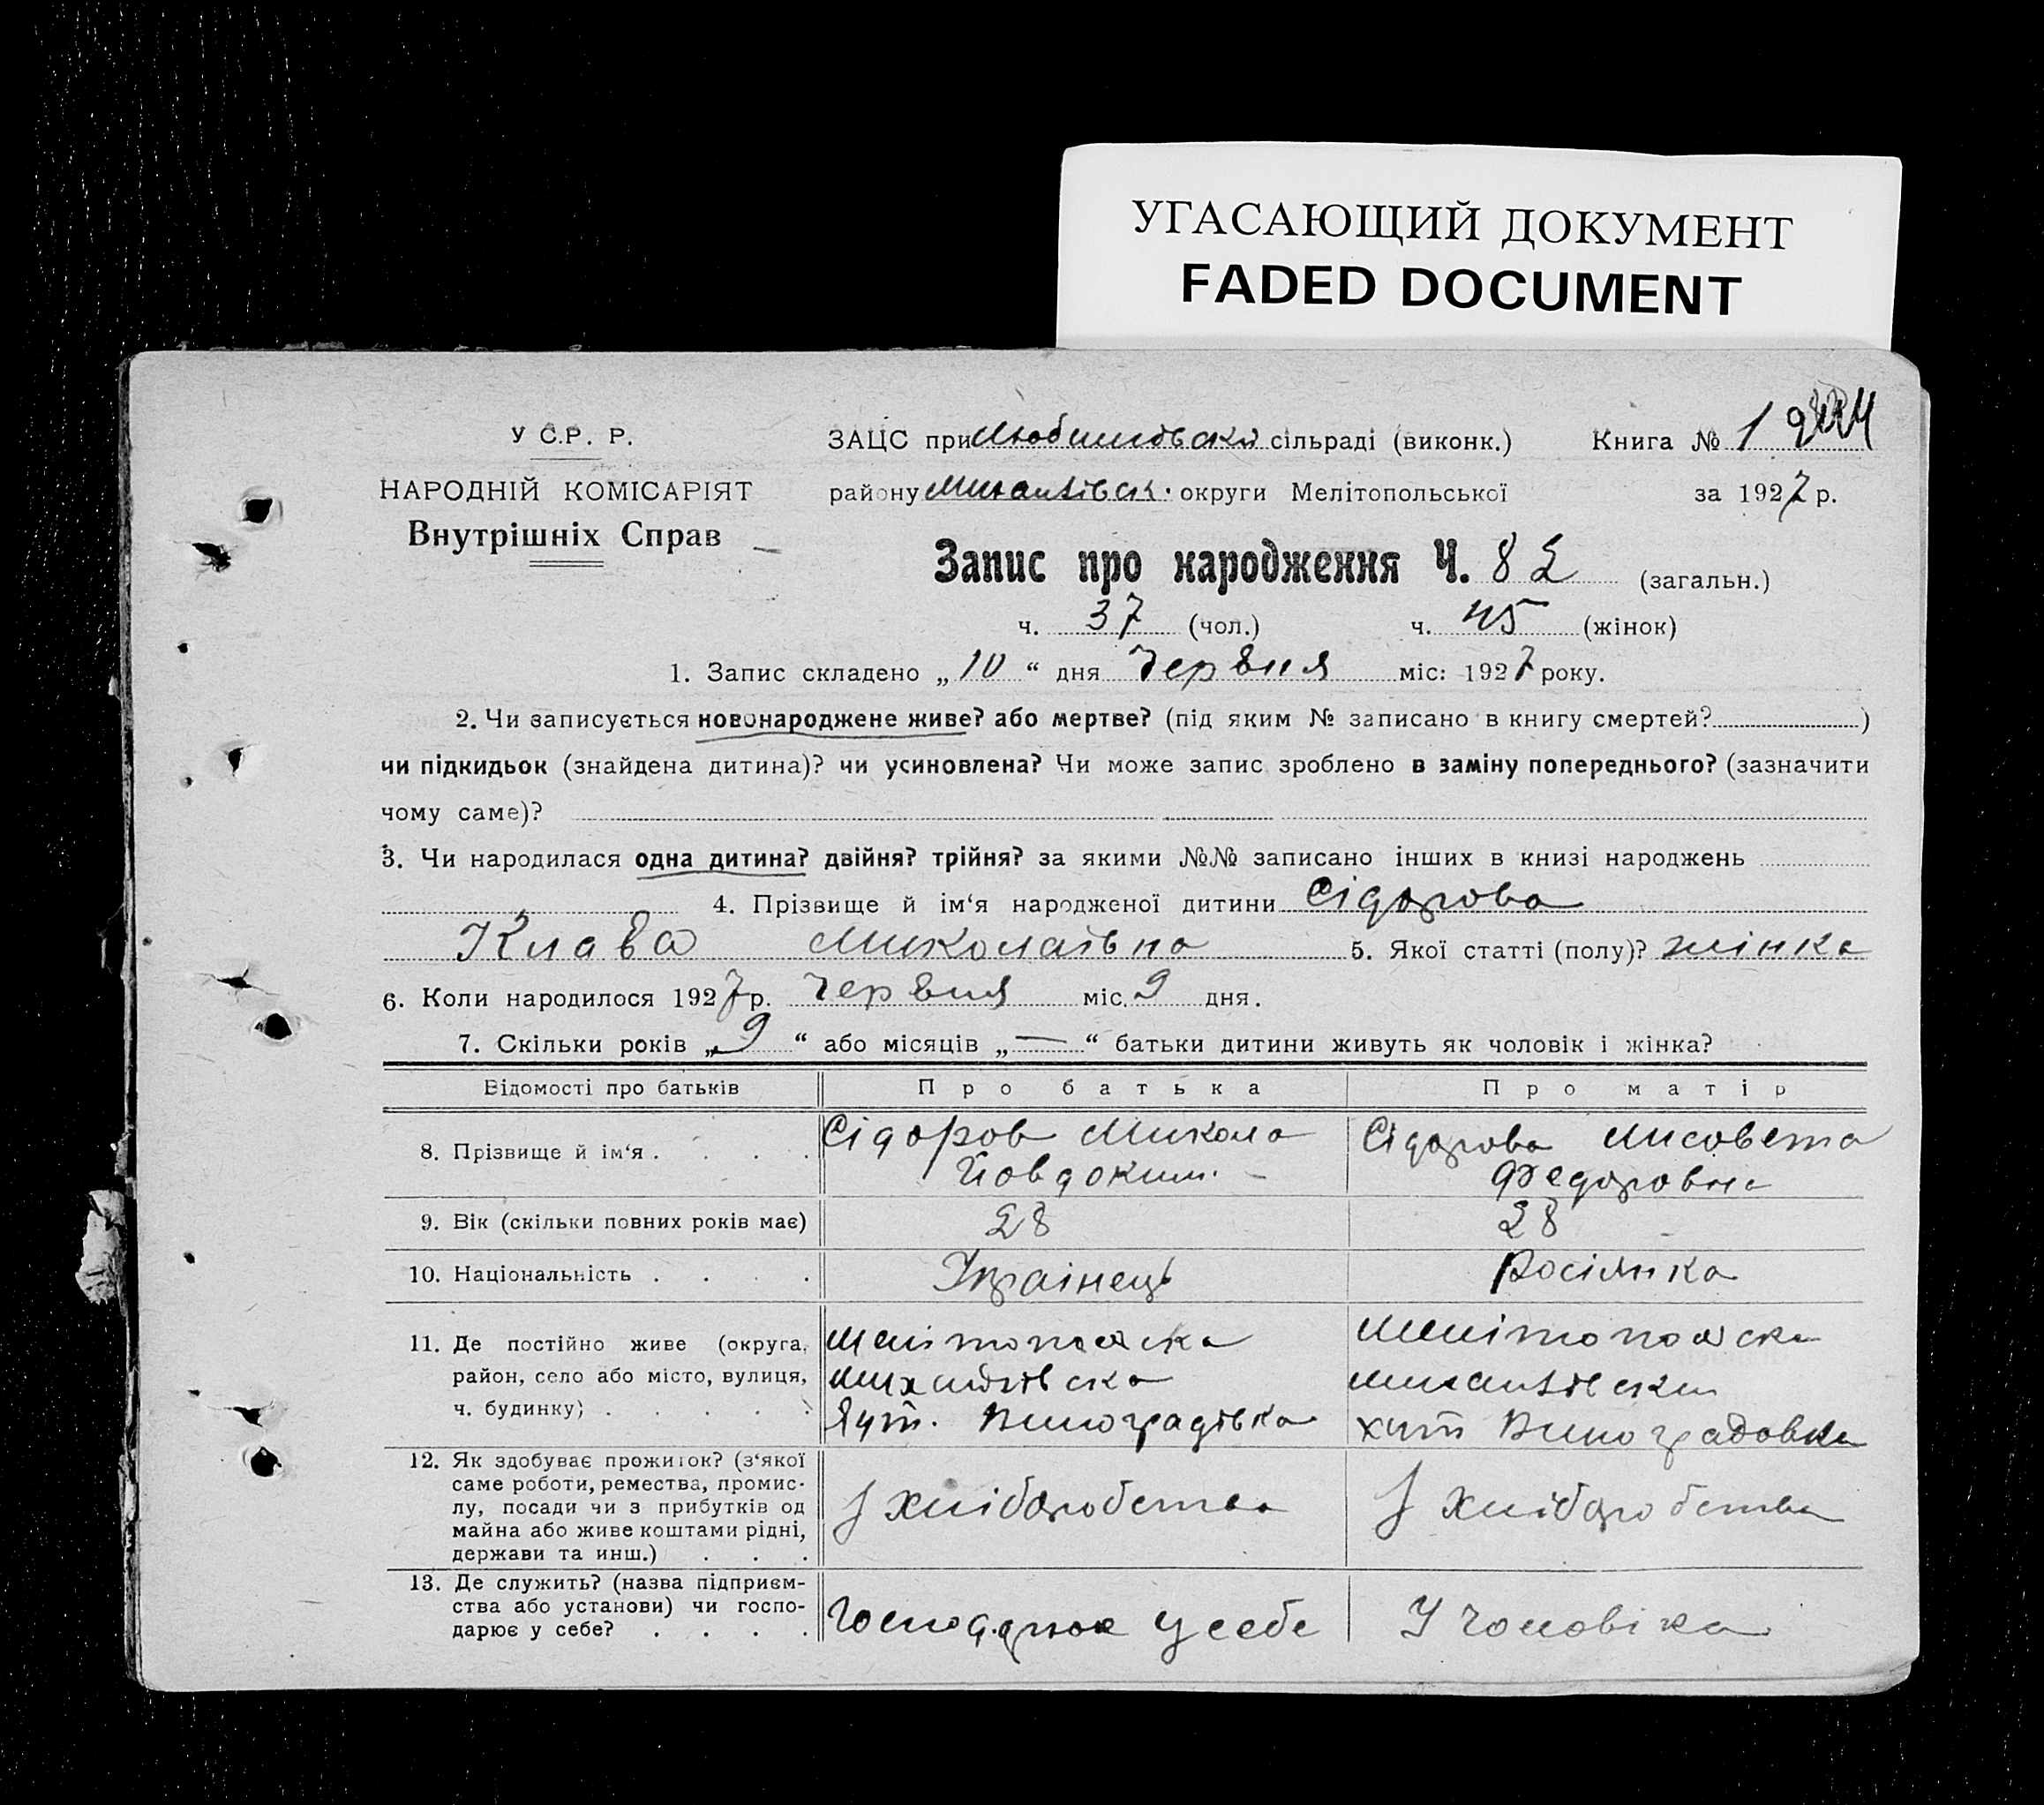 УГАСАЮЩИЙ ДОКУМЕНТ
FADED DOCUMENT
У С.Р. Р.
НАРОДНІЙ КОМІСАРІЯТ
Внутрішніх Справ
ЗАЦС при Любимівській сільраді (виконк.) Книга № 1
району Михайлівськ. округи Мелітопольської за 1927 р.
Запис про народження Ч. 82 (загальн.)
ч. 37 (чол.) ч. 45 (жінок)
1. Запис складено „10“ дня Червня міс: 1927 року.
2. Чи записується новонароджене живе? або мертве? (під яким № записано в книгу смертей? )
чи підкидьок (знайдена дитина)? чи усиновлена? Чи може запис зроблено в заміну попереднього? (зазначити
чому саме)?
3. Чи народилася одна дитина? двійня? трійня? за якими №№ записано інших в книзі народжень
4. Прізвище й ім‘я народженої дитини Сідорова
Клава Миколаївна 5. Якої статті (полу)? жінка
6. Коли народилося 1927 р. Червня міс. 9 дня.
7. Скільки років „9“ або місяців „—“ батьки дитини живуть як чоловік і жінка?
Відомості про батьків Про батька Про матір
8. Прізвище й ім‘я . . . . Сідоров Микола Йовдоким. Сідорова Лисовета Федоровна
9. Вік (скільки повних років має) 28 28
10. Національність . . . . Украінець Росіянка
11. Де постійно живе (округа, район, село або місто, вулиця, ч. будинку) . . . . . Мелітопольска Михайлівска Хут. Виноградівка Мелітопольска Михайлівска хут Виноградовка
12. Як здобуває прожиток? (з‘якої саме роботи, ремества, промислу, посади чи з прибутків од майна або живе коштами рідні, держави та инш.) . . . З хліборобства З хліборобства
13. Де служить? (назва підприємства або установи) чи господарює у себе? . . . . Господарює у себе У чоловіка